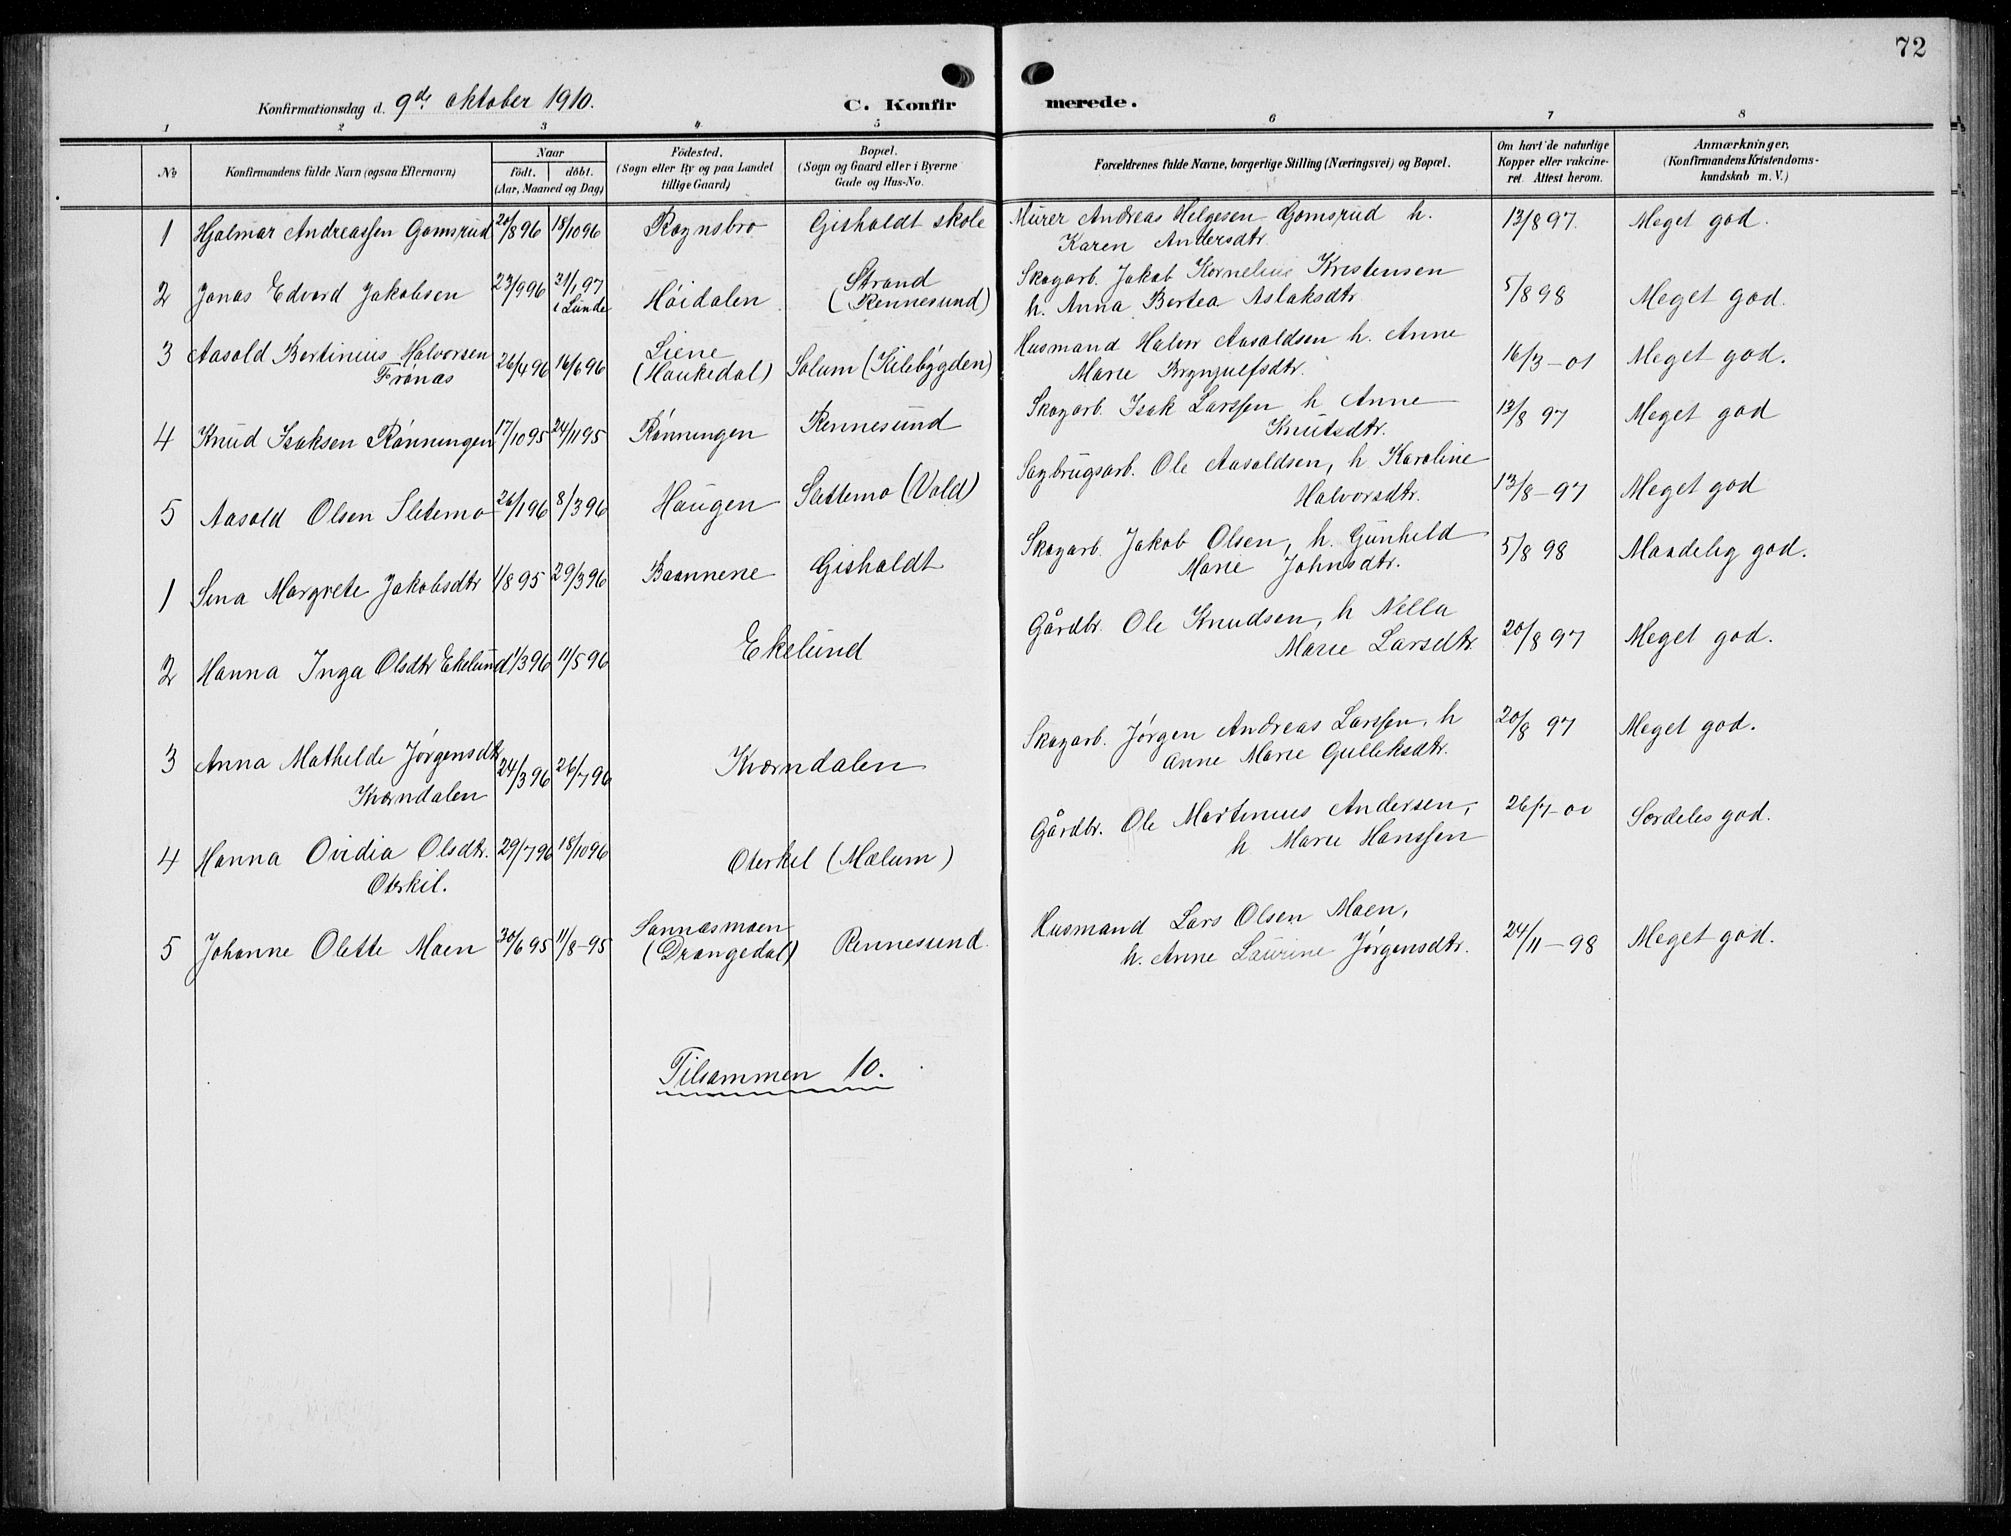 72
Konfirmationsdag d. 9de oktober 1910.
C. Konfirmerede.
1 2 3 4 5 6 7 8
No
Konfirmandens fulde Navn (ogsaa Efternavn)
Naar
födt. döbt.
(Aar, Maaned og Dag)
Födested.
(Sogn eller By og paa Landet
tillige Gaard)
Bopæl.
(Sogn og Gaard eller i Byerne
Gade og Hus-No.
Forældrenes fulde Navne, borgerlige Stilling (Næringsvei) og Bopæl.
Om havt de naturlige
Kopper eller vakcine-
ret. Attest herom.
Anmærkninger,
(Konfirmandens Kristendoms-
kundskab m. V.)
1 Hjalmar Andreassen Gomsrud 20/8 96 18/10 96 Rognsbro Gisholdt skole Murer Andreas Helgesen Gomsrud h. 13/8 97. Meget god.
Karen Andersdtr.
2 Jonas Edvard Jakobsen 23/9 96 31/1 97 Høidalen Strand Skogarb. Jakob Kornelius Kristensen 5/8 98 Meget god.
i Lunde (Rennesund) h. Anna Bertea Aslaksdtr.
3 Aasold Bertinius Halvorsen 26/4 96 16/6 96 Liene Solum (Kilebygden) Husmand Halvor Aasoldsen h. Anne 16/3 - 01 Meget god.
Frønæs (Haukedal) Marie Brynjulfsdtr.
4 Knud Isaksen Rønningen 17/10 95 24/11 95 Rønningen Rennesund Skogarb. Isak Larssen h Anne 13/8 97 Meget god
Knutsdtr.
5 Aasold Olsen Sletemo 26/1 96 8/3 96 Haugen Slettemo (Vold) Sagbrugsarb. Ole Aasoldsen, h Karoline 13/8 - 97 Meget god
Halvorsdtr.
1 Sina Margrete Jakobsdtr 1/8 95 29/3 96 Baannene Gisholdt Skogarb. Jakob Olsen, h. Gunhild 5/8 98 Maadelig god.
Marie Johnsdtr.
2 Hanna Inga Olsdtr Ekelund 1/3 96 11/5 96 Ekelund Gårdbr. Ole Knudsen, h Nella 20/8 97 Meget god.
Marie Larsdtr.
3 Anna Mathilde Jørgensdtr 24/3 96 26/7 96 Kværndalen Skogarb. Jørgen Andreas Larssen, h 20/8 97 Meget god.
Kværndalen Anne Marie Gulleksdtr.
4 Hanna Ovidia Olsdtr. 29/7 96 18/10 96 Oterkil (Mælum) Gårdbr. Ole Martinius Andersen, 26/7 - 00 Særdeles god.
Oterkil. h Marie Hanssen
5 Johanne Olette Moen 30/6 95 11/8 - 95 Sannæsmoen Rennesund. Husmand Lars Olsen Moen, 24/11 - 98 Meget god.
(Drangedal) h. Anne Laurine Jørgensdtr.
Tilsammen 10.